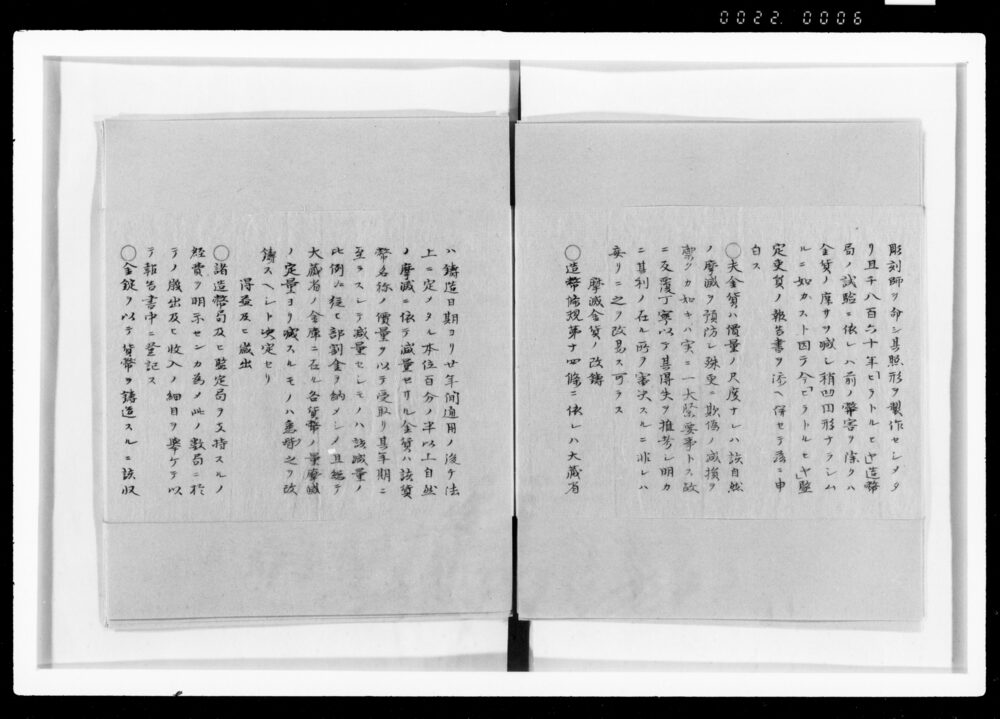 0022 0006
彫刻師ヲ命シ其照形ヲ製作セシメタ
リ且千八百六十年「ヒラトルヒヤ」造幣
局ノ試驗ニ依レハ前ノ弊害ヲ除クハ
金貨ノ厚サヲ減シ稍凹円形ナラシム
ルニ如カスト因テ今「ヒラトルヒヤ」監
定吏負ノ報告書ヲ添ヘ併セテ茲ニ申
白ス
○夫金貨ハ價量ノ尺度ナレハ該自然
ノ摩減ヲ預防シ殊更ニ欺偽ノ減損ヲ
禦クカ如キハ実ニ一大緊要事トス故
ニ反覆丁寧以テ其得失ヲ推考シ明カ
ニ其利ノ在ル所ヲ審决スルニ非レハ
妄リニ之ヲ改易ス可ラス
摩滅金貨ノ改鑄
○造幣條規第十四條ニ依レハ大藏省
ハ鋳造日期ヨリ廿年間通用ノ後チ法
上ニ定メタル本位百分ノ半以上自然
ノ摩滅ニ依テ減量セザル金貨ハ該貨
幣名称ノ價量ヲ以テ受取リ其年期ニ
至ラスシテ減量セシモノハ該減量ノ
比例ニ從ヒ部割金ヲ納メシメ且総テ
大藏省ノ金庫ニ在ル各貨幣ノ量摩滅
ノ定量ヨリ減スルモノハ悉ク之ヲ改
鋳スヘシト决定セリ
得益及ヒ歳出
○諸造幣局及ヒ監定局ヲ支持スルノ
経費ヲ明示センカ為メ此ノ数局ニ於
テノ歳出及ヒ收入ノ細目ヲ挙ケテ以
テ報告書中ニ登記ス
○金錠ヲ以テ貨幣ヲ鋳造スルニ該收